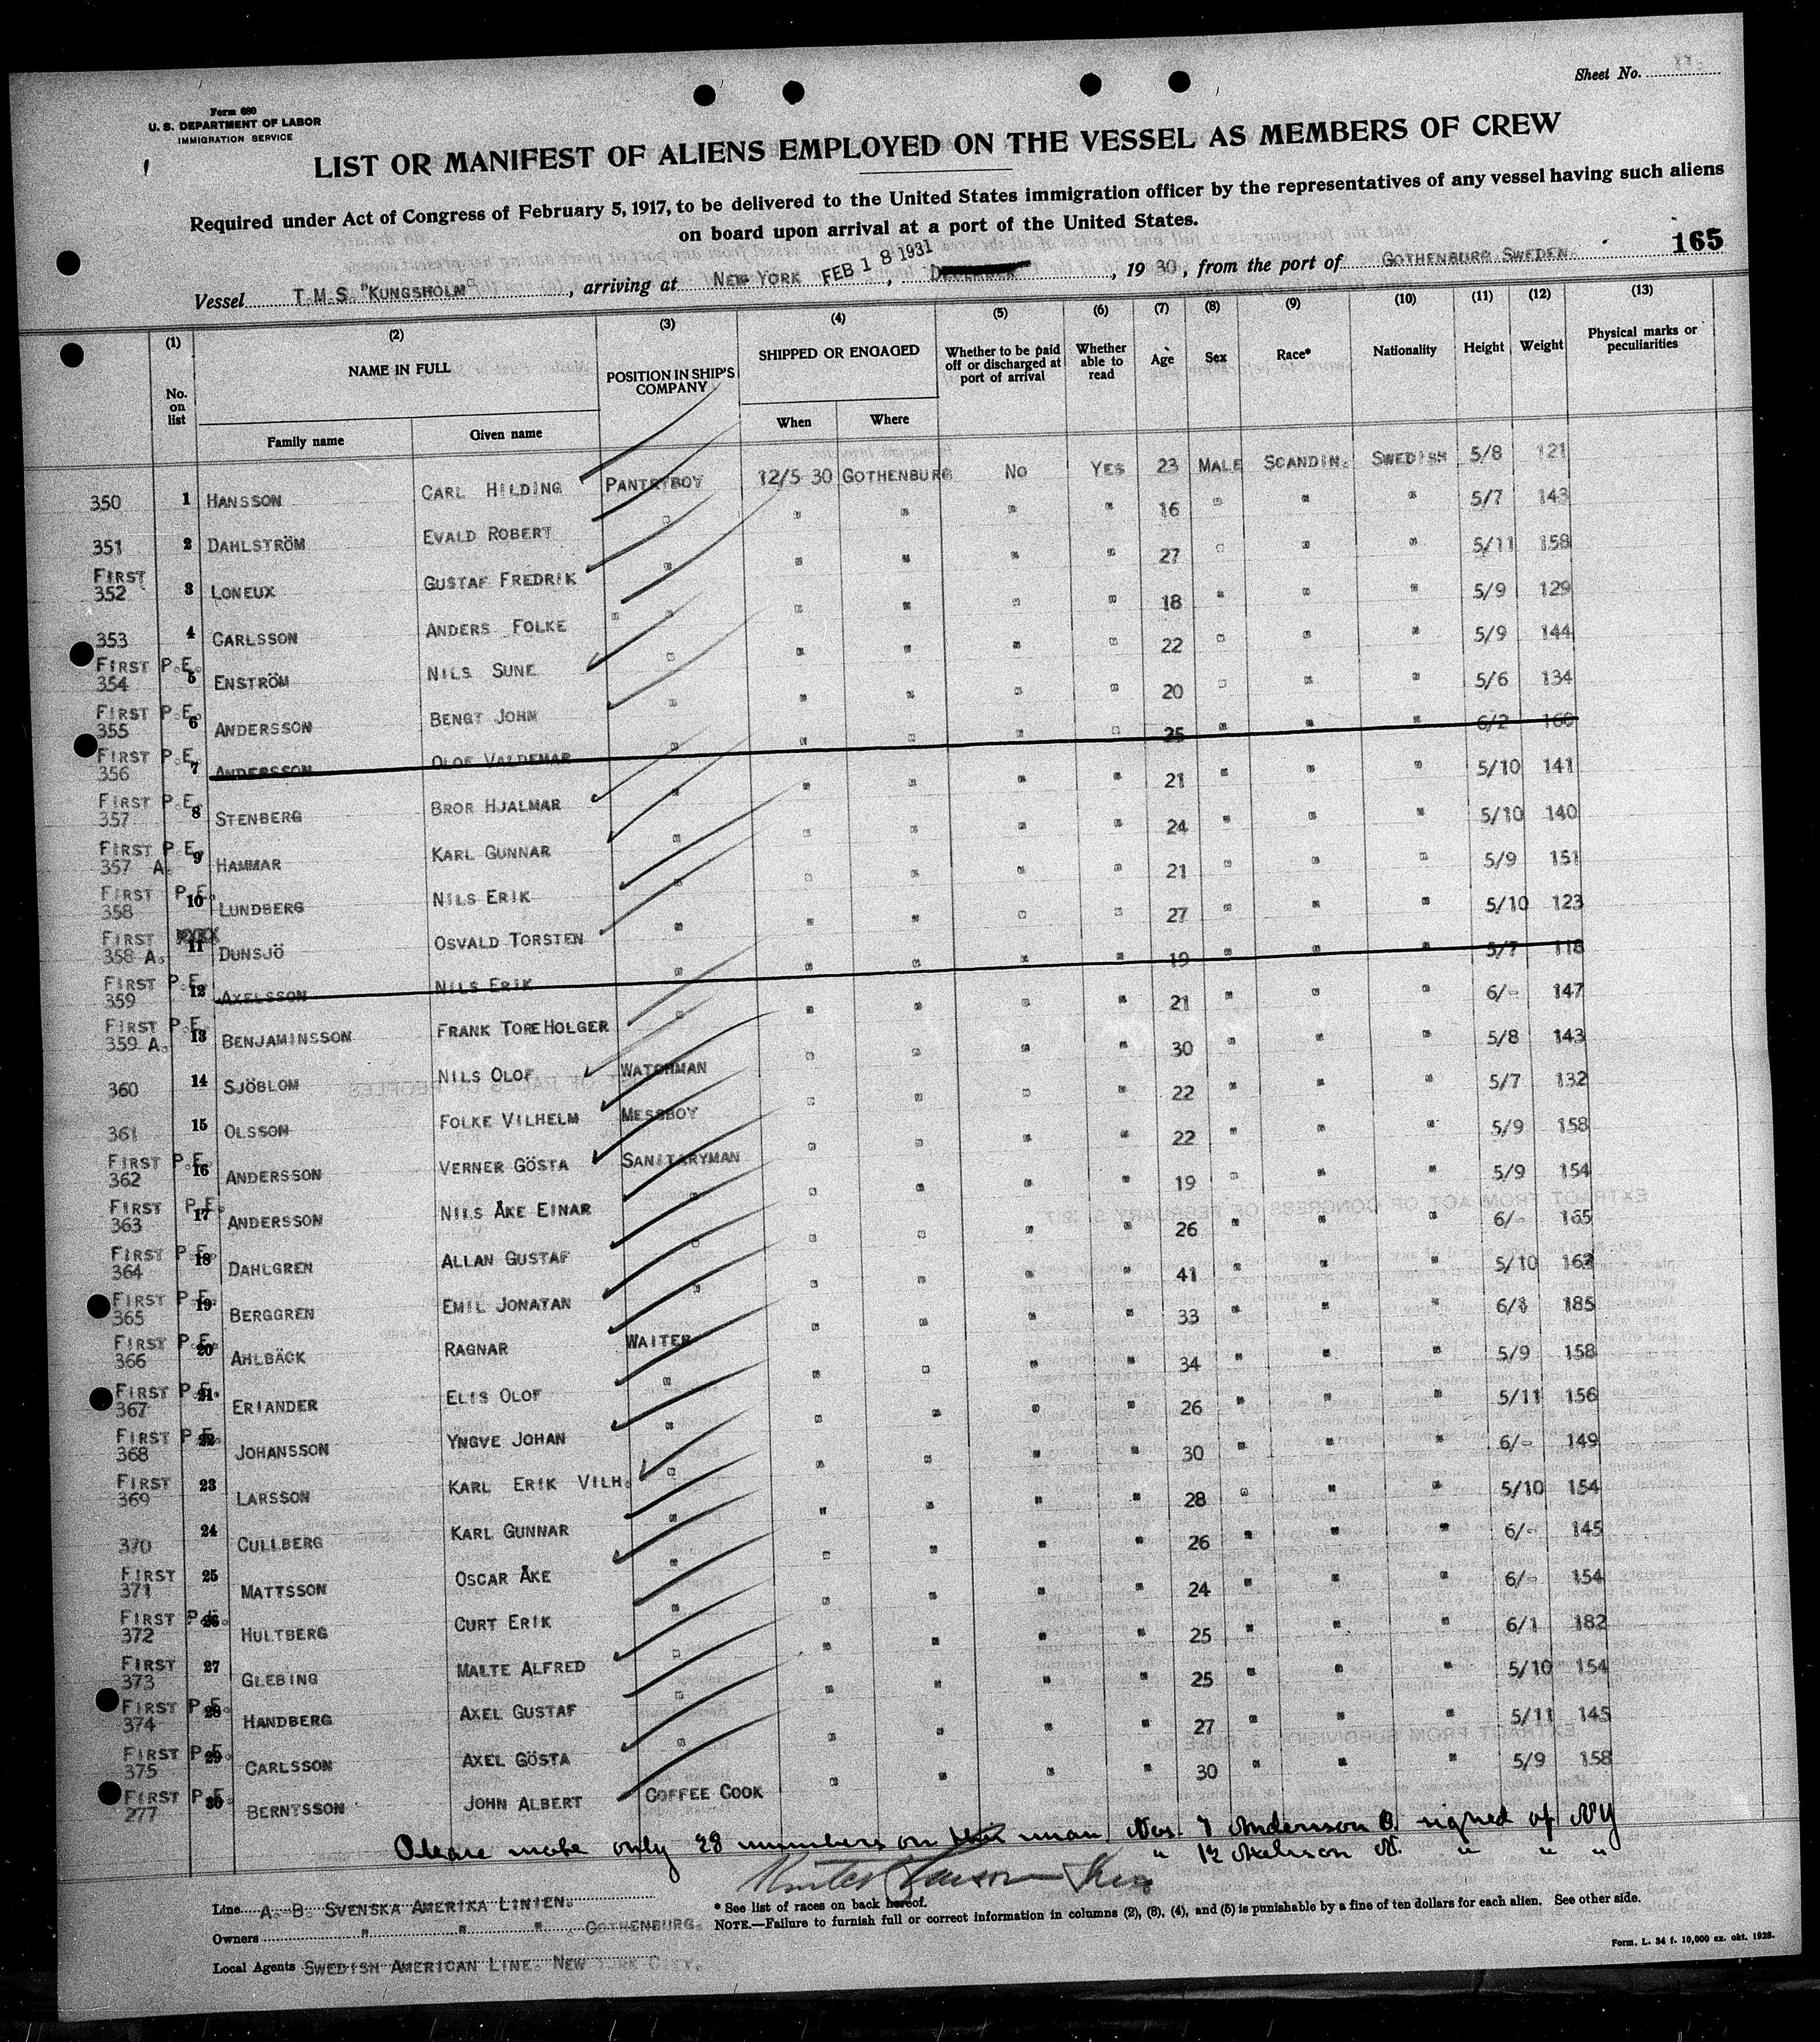 Sheet No.
Form 680
U. S. DEPARTMENT OF LABOR
IMMIGRATION SERVICE
LIST OR MANIFEST OF ALIENS EMPLOYED ON THE VESSEL AS MEMBERS OF CREW
Required under Act of Congress of February 5, 1917, to be delivered to the United States immigration officer by the representatives of any vessel having such aliens
on board upon arrival at a port of the United States.
165
Vessel T.M.S. "KUNGSHOLM", arriving at NEW YORK FEB 18 1931, 1930, from the port of GOTHENBURG SWEDEN.
(1) (2) (3) (4) (5) (6) (7) (8) (9) (10) (11) (12) (13)
No. on list NAME IN FULL POSITION IN SHIP'S COMPANY SHIPPED OR ENGAGED Whether to be paid off or discharged at port of arrival Whether able to read Age Sex Race* Nationality Height Weight Physical marks or peculiarities
Family name Given name When Where
350 1 HANSSON CARL HILDING PANTRYBOY 12/5 30 GOTHENBURG NO YES 23 MALE SCANDIN. SWEDISH 5/8 121
351 2 DAHLSTRÖM EVALD ROBERT " " " " " 16 " " " 5/7 143
FIRST 352 3 LONEUX GUSTAF FREDRIK " " " " " 27 " " " 5/11 158
353 4 CARLSSON ANDERS FOLKE " " " " " 18 " " " 5/9 129
FIRST P.E. 354 5 ENSTRÖM NILS SUNE " " " " " 22 " " " 5/9 144
FIRST P.E. 355 6 ANDERSSON BENGT JOHN " " " " " 20 " " " 5/6 134
FIRST P.E. 356 7 ANDERSSON OLOF VALDEMAR " " " " " 25 " " " 6/2 160
FIRST P.E. 357 8 STENBERG BROR HJALMAR " " " " " 21 " " " 5/10 141
FIRST P.E. 357 A. 9 HAMMAR KARL GUNNAR " " " " " 24 " " " 5/10 140
FIRST P.E. 358 10 LUNDBERG NILS ERIK " " " " " 21 " " " 5/9 151
FIRST 358 A. 11 DUNSJÖ OSVALD TORSTEN " " " " " 27 " " " 5/10 123
FIRST P.E. 359 12 AXELSSON NILS ERIK " " " " " 19 " " " 5/7 118
FIRST P.E. 359 A. 13 BENJAMINSSON FRANK TORE HOLGER " " " " " 21 " " " 6/- 147
360 14 SJÖBLOM NILS OLOF WATCHMAN " " " " 30 " " " 5/8 143
361 15 OLSSON FOLKE VILHELM MESSBOY " " " " 22 " " " 5/7 132
FIRST P.E. 362 16 ANDERSSON VERNER GÖSTA SANITARYMAN " " " " 22 " " " 5/9 158
FIRST P.E. 363 17 ANDERSSON NILS ÅKE EINAR " " " " " 19 " " " 5/9 154
FIRST P.E. 364 18 DAHLGREN ALLAN GUSTAF " " " " " 26 " " " 6/- 165
FIRST P.E. 365 19 BERGGREN EMIL JONATAN " " " " " 41 " " " 5/10 163
FIRST P.E. 366 20 AHLBÄCK RAGNAR WAITER " " " " 33 " " " 185
FIRST P.E. 367 21 ERIANDER ELIS OLOF " " " " " 34 " " " 5/9 158
FIRST P.E. 368 22 JOHANSSON YNGVE JOHAN " " " " " 26 " " " 5/11 156
FIRST 369 23 LARSSON KARL ERIK VILH. " " " " " 30 " " " 6/- 149
370 24 CULLBERG KARL GUNNAR " " " " " 28 " " " 5/10 154
FIRST 371 25 MATTSSON OSCAR ÅKE " " " " " 26 " " " 6/- 145
FIRST P.E. 372 26 HULTBERG CURT ERIK " " " " " 24 " " " 6/- 154
FIRST 373 27 GLEBING MALTE ALFRED " " " " " 25 " " " 6/1 182
FIRST P.E. 374 28 HANDBERG AXEL GUSTAF " " " " " 25 " " " 5/10 154
FIRST P.E. 375 29 CARLSSON AXEL GÖSTA " " " " " 27 " " " 5/11 145
FIRST P.E. 277 30 BERNTSSON JOHN ALBERT COFFEE COOK " " " " 30 " " " 5/9 158
Please note only 28 numbers on man Nos. 7 Anderson O. signed of NY
" 12 Axelsson N. " " "
Line A. B. SVENSKA AMERIKA LINIEN.
* See list of races on back hereof.
Owners " " " GOTHENBURG.
NOTE.—Failure to furnish full or correct information in columns (2), (3), (4), and (5) is punishable by a fine of ten dollars for each alien. See other side.
Local Agents SWEDISH AMERICAN LINE. NEW YORK CITY.
Form. L. 34 f. 10,000 ex. okt. 1928.